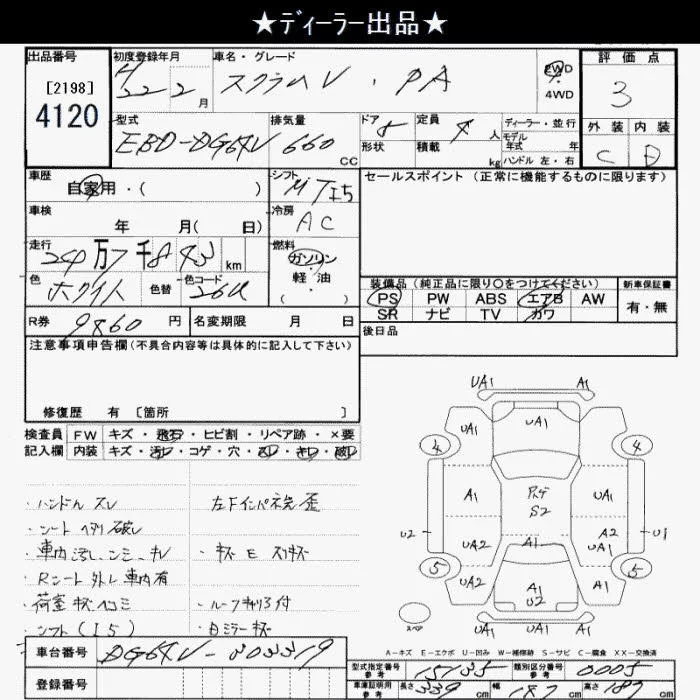 ★ディーラー出品★
出品番号
[2198]
4120
初度登録年月
H22年2月
車名・グレード
スクラムV・PA
2WD
4WD
評価点
3
型式
EBD-DG64V
排気量
660
CC
ドア
形状
5
定員
積載
4 人
kg
ディーラー・並行
モデル
年式 年
ハンドル 左・右
外装
C
内装
D
車歴
自家用・( )
シフト
M TI5
セールスポイント(正常に機能するものに限ります)
車検
年 月( 日)
冷房
AC
走行
24万7千843km
燃料
ガソリン
軽油
( )
色
ホワイト
色替
色コード
26U
装備品(純正品に限り○をつけてください)
新車保証書
PS PW ABS エアB AW
有・無
SR ナビ TV カワ
R券
9860円
名変期限 月 日
後日品
注意事項申告欄(不具合内容等は具体的に記入して下さい)
修復歴 有 [箇所 ]
検査員
記入欄
FW キズ・飛石・ヒビ割・リペア跡・×要
内装 キズ・汚レ・コゲ・穴・スレ・キレ・破レ
・ハンドルスレ
左Fインパネ先歪
・シートヘタリ破レ
・車内汚レ、シミ、キレ
・キズEスリキズ
・Rシート外レ車内有
・荷室キズヘコミ
・シフト(I5)
・白ミラーキズ
UA1
A1
UA1
UA1
A1
4
4
A1
S2
UA1
U2
UA2
A1
A2
UA1
U1
5
5
UA2
A1
U2
A1
UA1
UA1
A1
スペア
A-キズ E-エクボ U-凹み W-補修跡 S-サビ C-腐食 XX-交換済
車台番号
DG64V-303319
登録番号
型式指定番号
参考
15135
類別区分番号
参考
0005
車庫証明用
参考
長さ
339
cm
幅
187
cm
高さ
187
cm